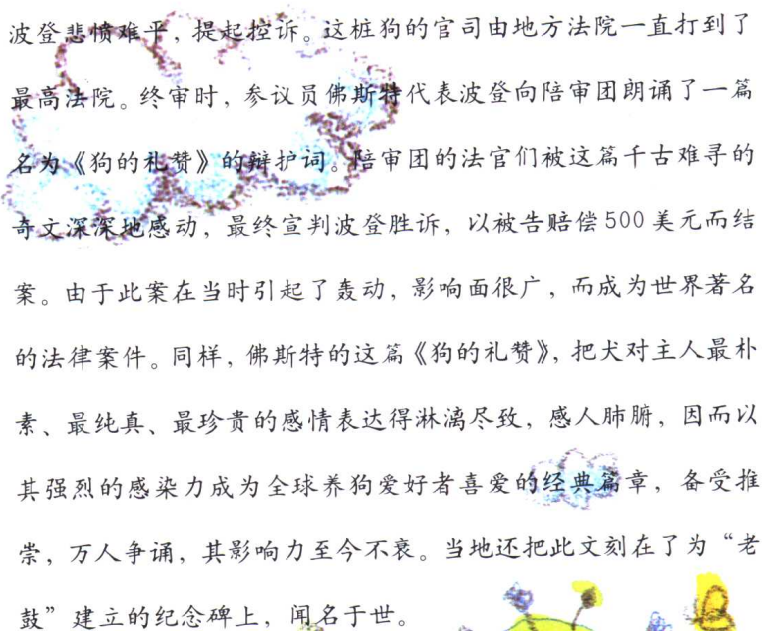 波登悲愤难平，提起控诉。这桩狗的官司由地方法院一直打到了
最高法院。终审时，参议员佛斯特代表波登向陪审团朗诵了一篇
名为《狗的礼赞》的辩护词。陪审团的法官们被这篇千古难寻的
奇文深深地感动，最终宣判波登胜诉，以被告赔偿500美元而结
案。由于此案在当时引起了轰动，影响面很广，而成为世界著名
的法律案件。同样，佛斯特的这篇《狗的礼赞》，把犬对主人最朴
素、最纯真、最珍贵的感情表达得淋漓尽致，感人肺腑，因而以
其强烈的感染力成为全球养狗爱好者喜爱的经典篇章，备受推
崇，万人争诵，其影响力至今不衰。当地还把此文刻在了为“老
鼓”建立的纪念碑上，闻名于世。